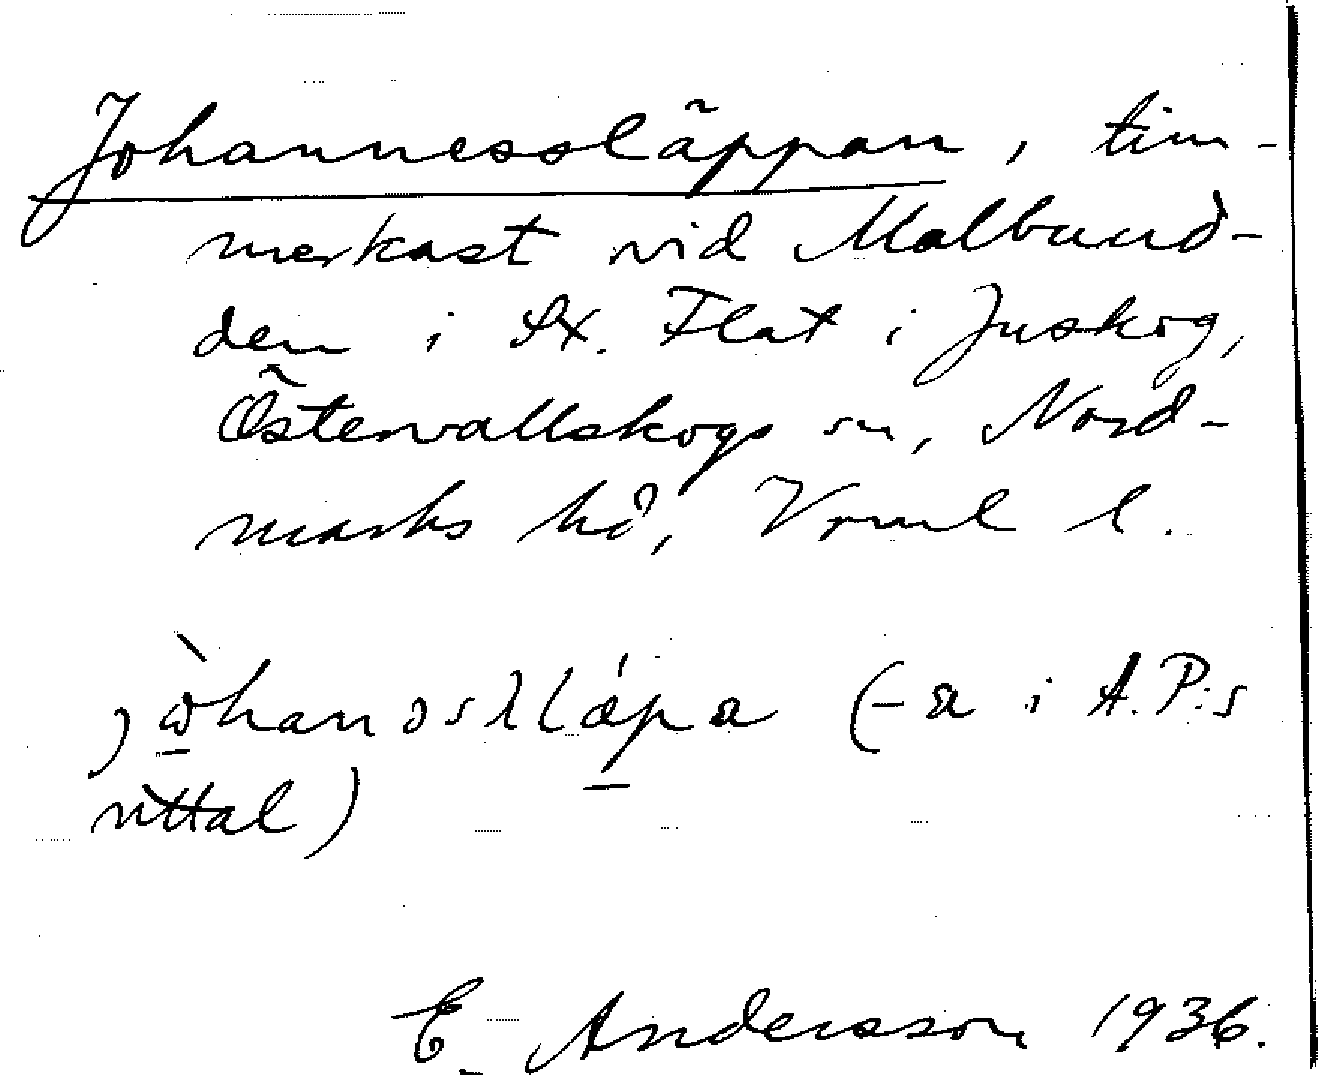 Johannessläppan, tim-
merkast vid Malbund-
den i St. Flat i Juskog,
Östervallskogs sn, Nord-
marks hd, Vrml l.
(-a i A.P:s
uttal)
E. Andersson 1936.